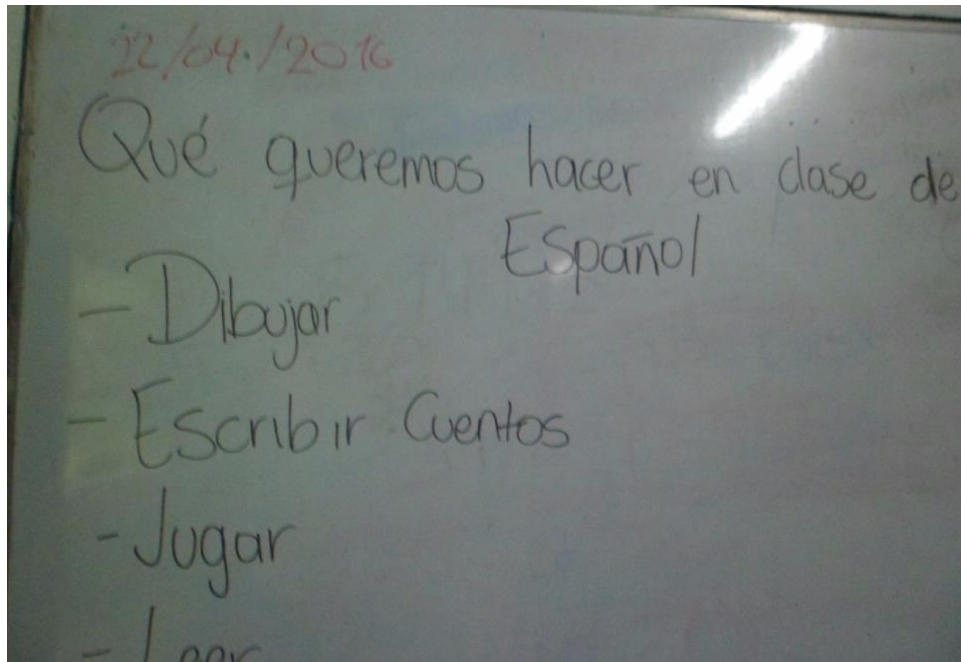 22/04./2016
Qué queremos hacer en clase de
Español
- Dibujar
- Escribir Cuentos
- Jugar
- Leer